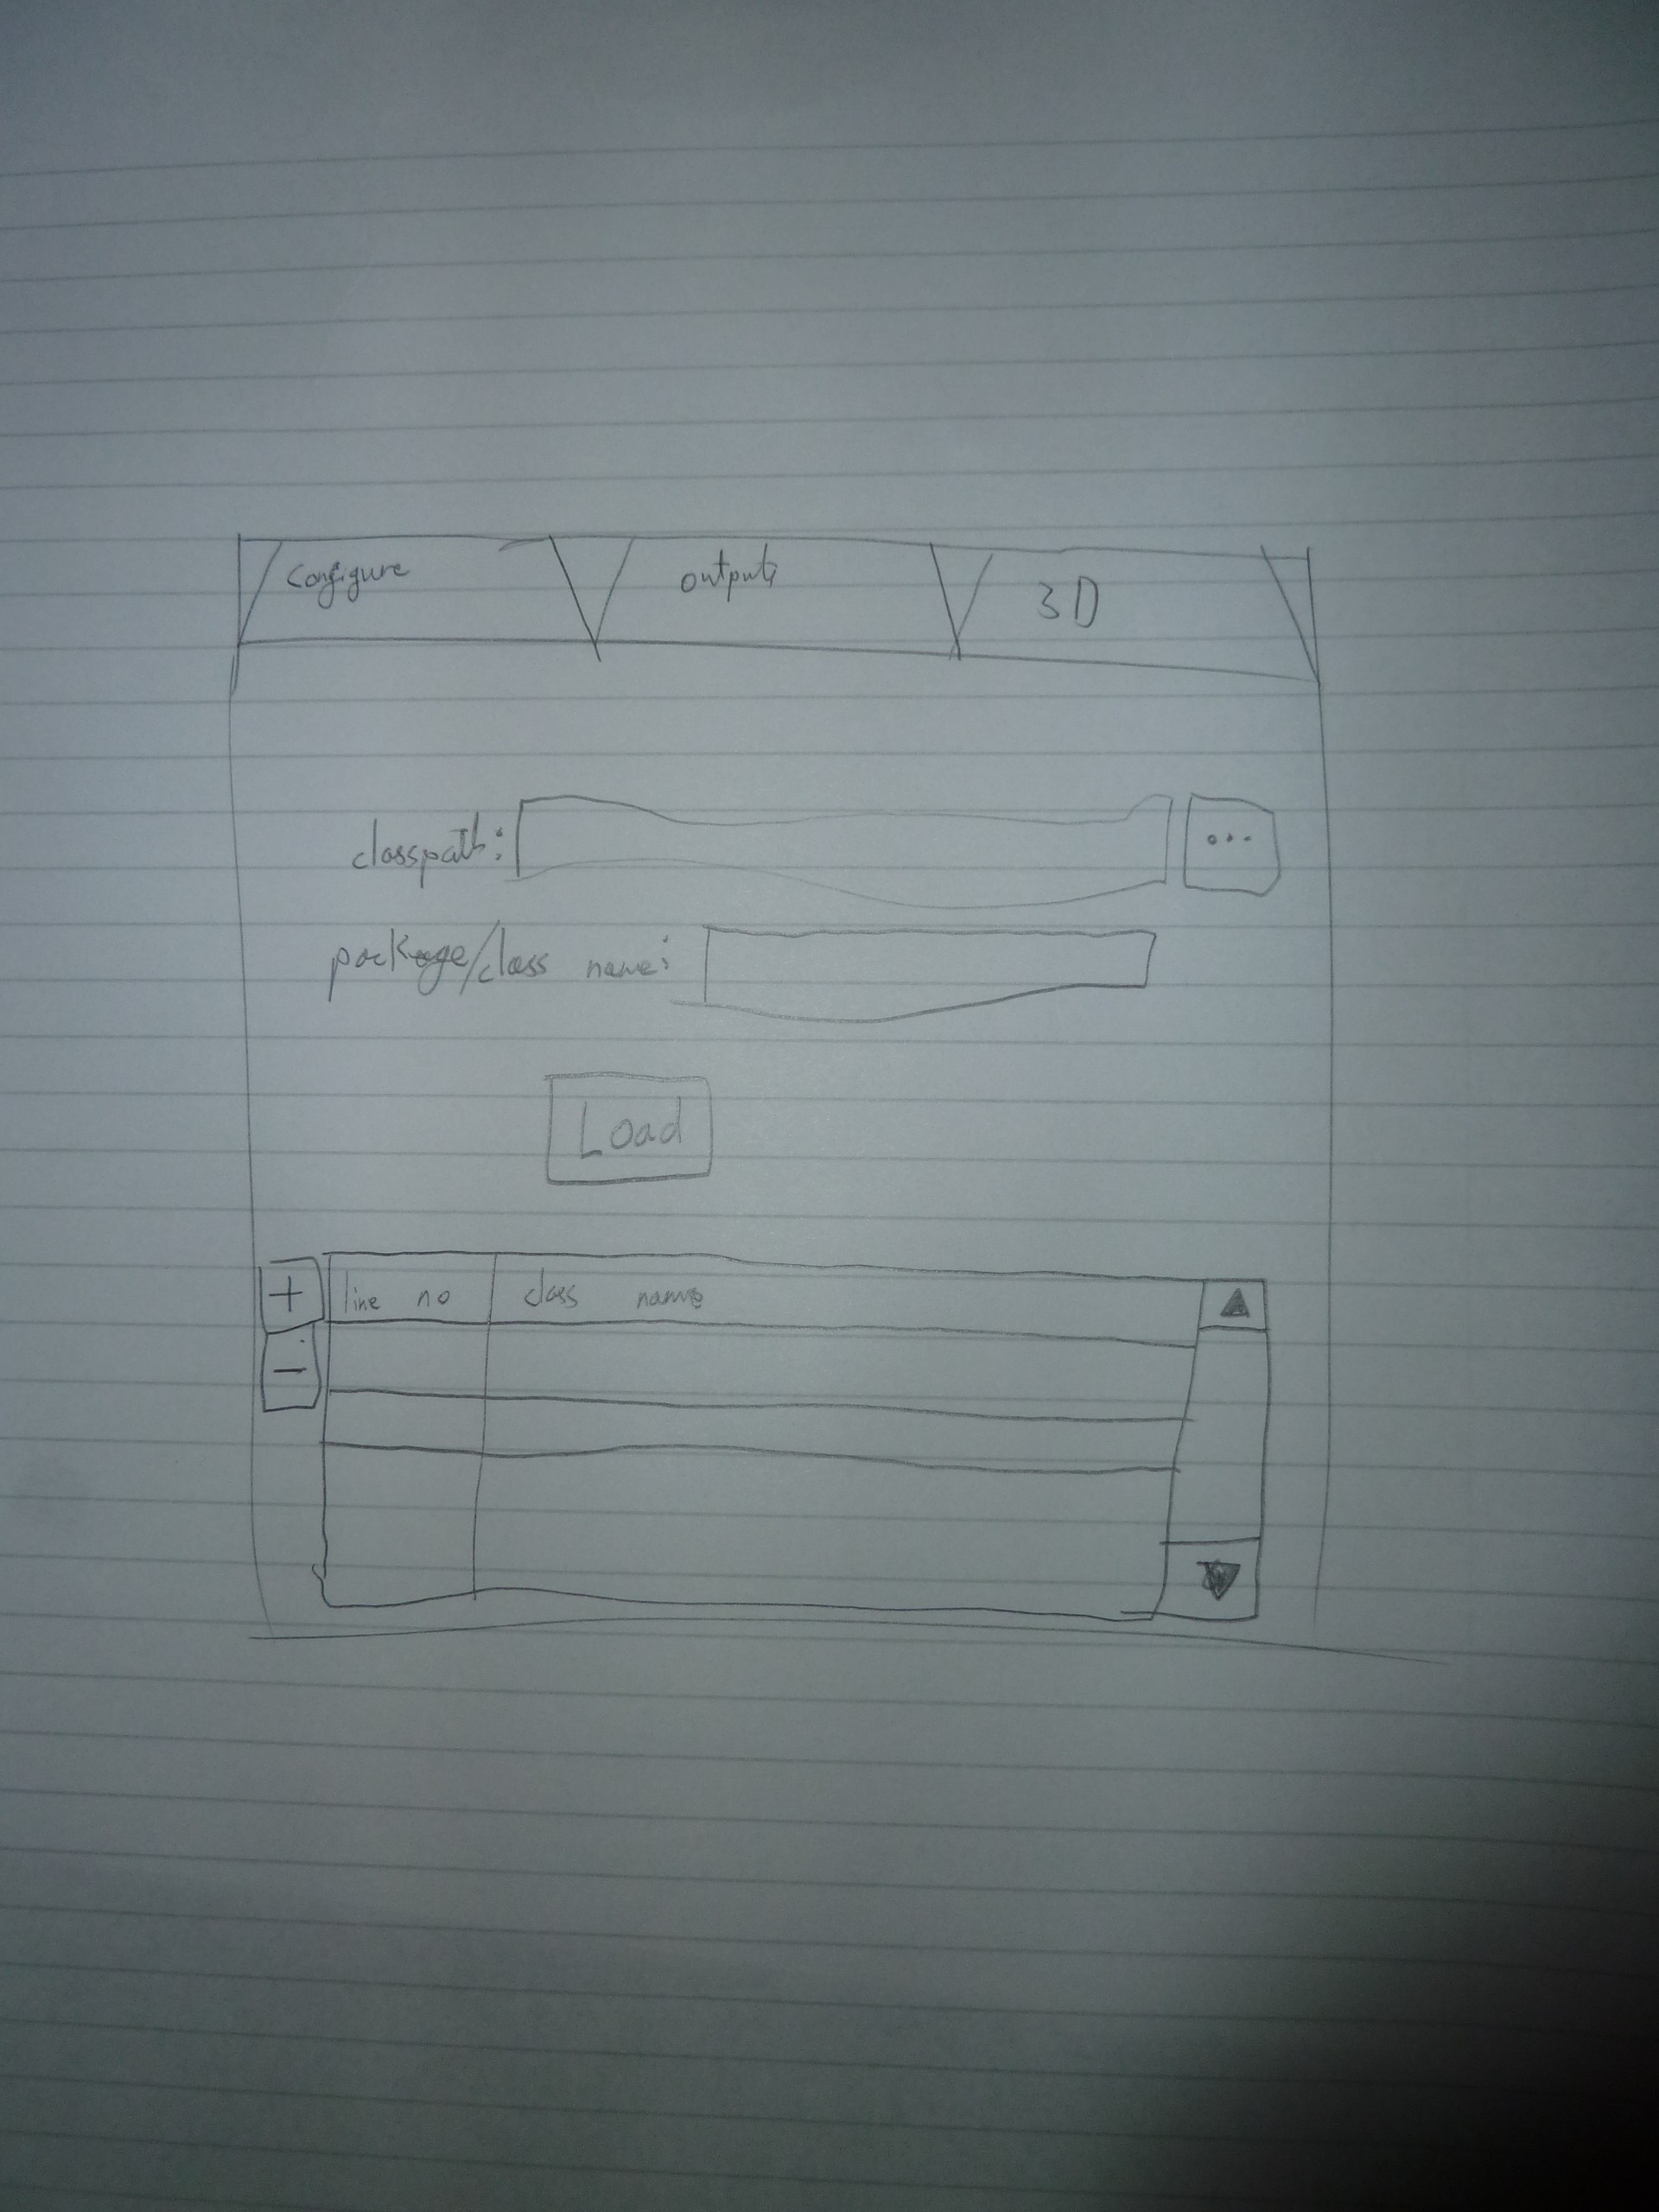 Configure outputs 3D
classpath: ...
package/class name:
Load
+ line no class name
-